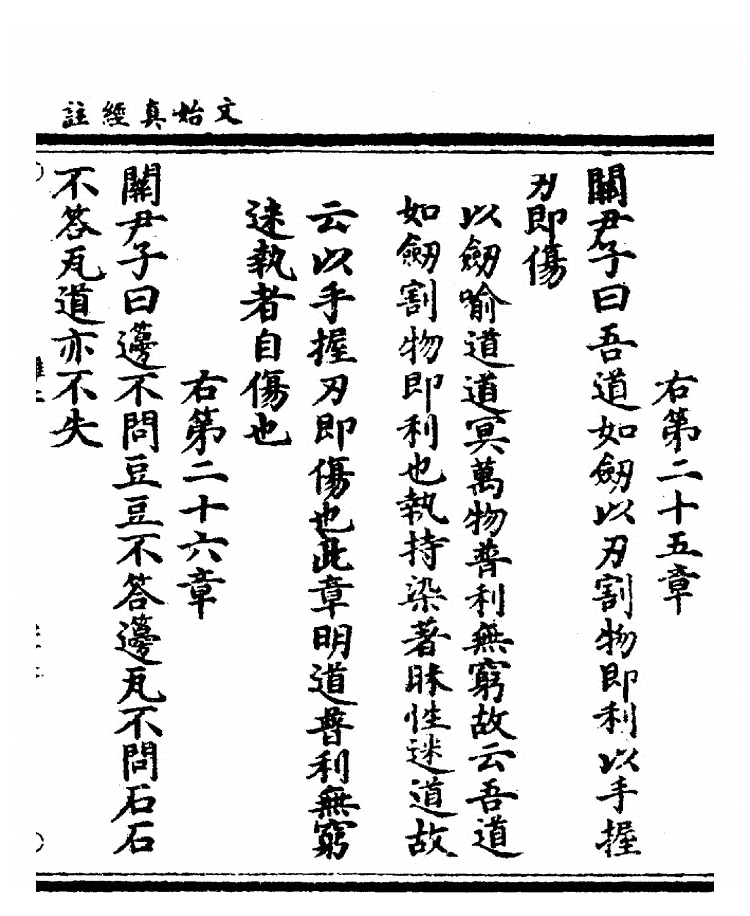 文始真經註
右第二十五章
關尹子曰吾道如劒以刃割物即利以手握
刃即傷
以劒喻道道冥萬物普利無窮故云吾道
如劒割物即利也執持染著昧性迷道故
云以手握刃即傷也此章明道普利無窮
迷執者自傷也
右第二十六章
關尹子曰籩不問豆豆不答籩瓦不問石石
不答瓦道亦不失